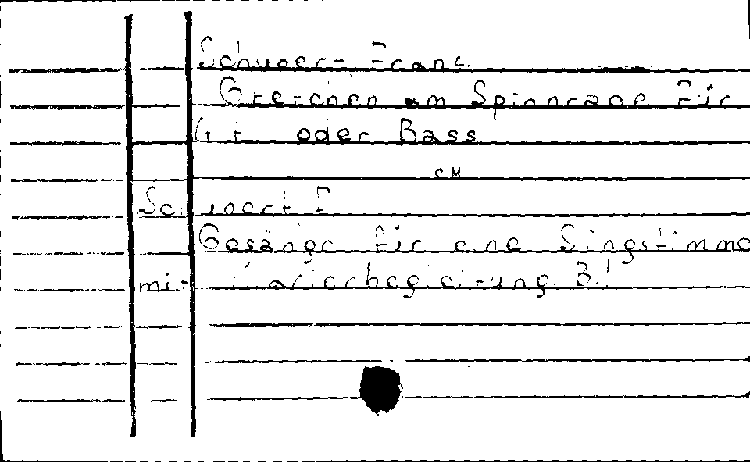 Schubert Franz
Gretchen am Spinnrade für
Alt oder Bass
CM
Schubert F
Gesänge für eine Singstimme
mit Clavierbegleitung Bd